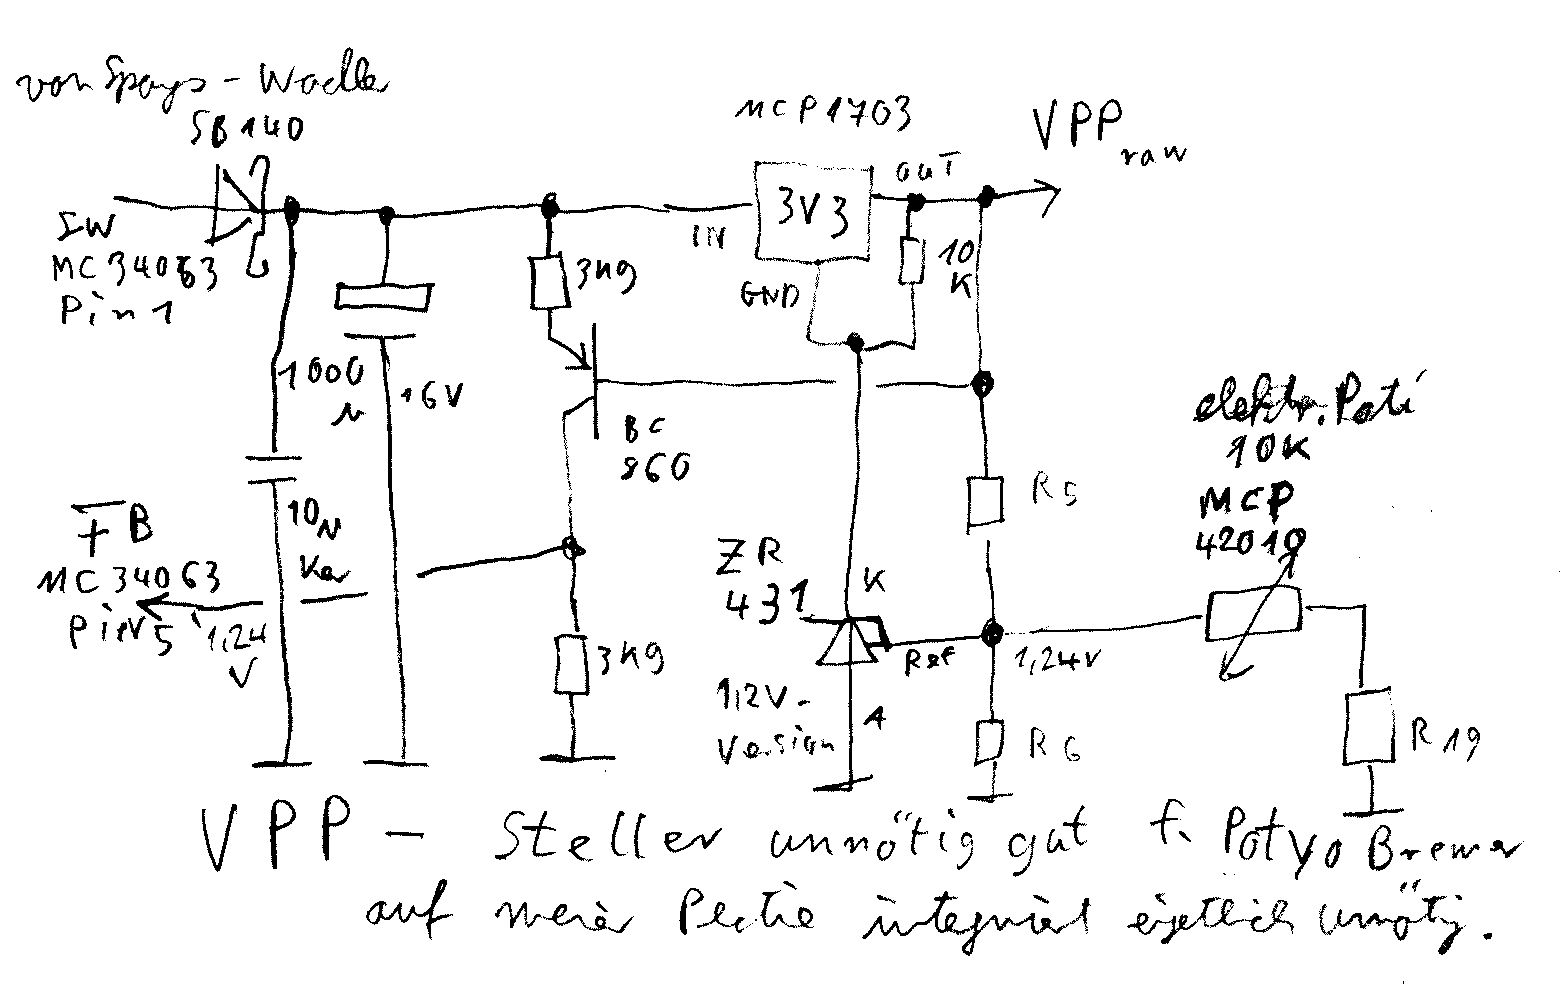 von Spgs - Wadler
SB140
MCP1703
VPP raw
OUT
3V3
SW
MC34063
Pin 1
IN
3K9
10
K
GND
1000
µ
16V
BC
860
elektr. Poti
10K
MCP
42010
R5
10N
Ker
FB
MC34063
Pin 5
1,24
V
ZR
431
K
Ref
1,24V
3K9
1,2V-
Version
A
R6
R19
VPP - Steller unnötig gut f. PotyoBrenner
auf meiner Platine integriert eigetlich unnötig.